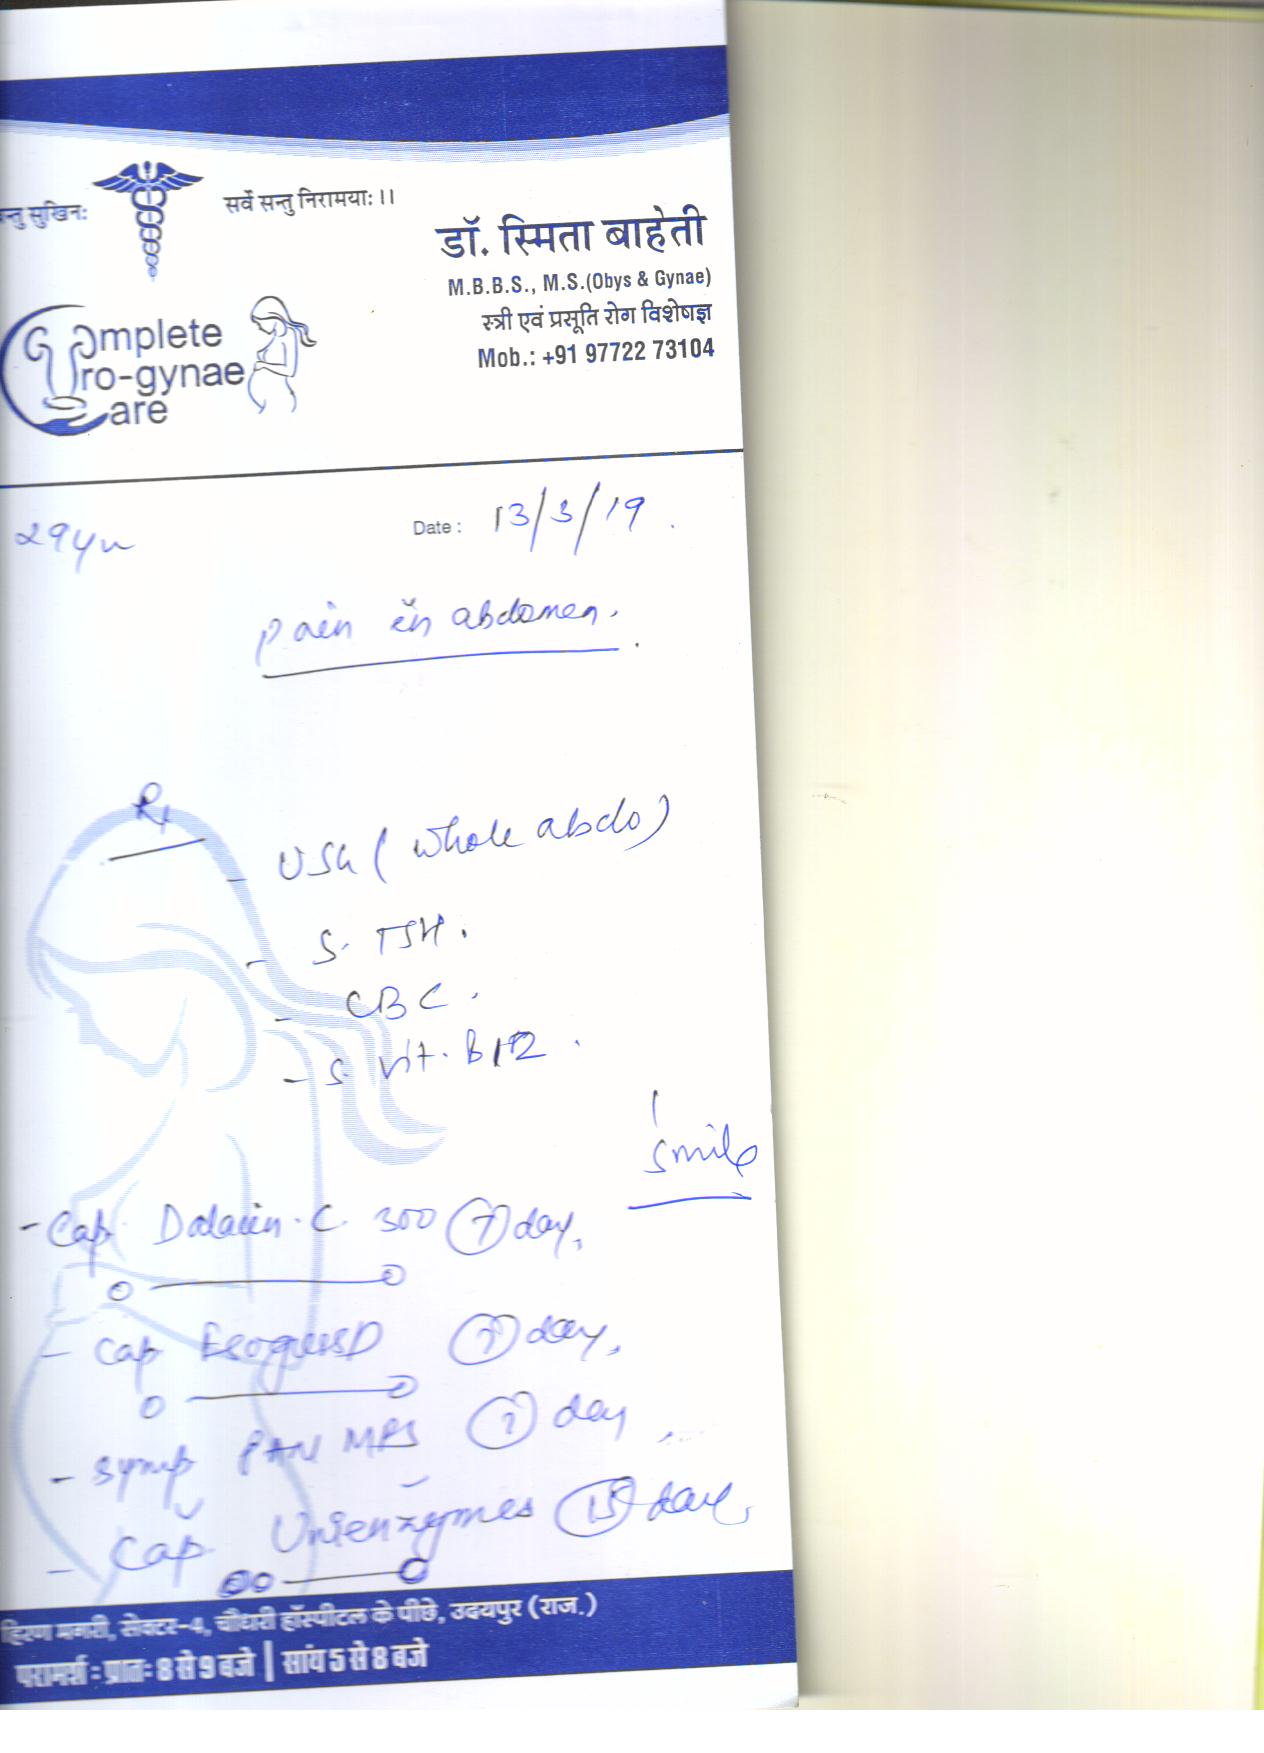 न्तु सुखिनः
सर्वे सन्तु निरामयाः।।
डॉ. स्मिता बाहेती
M.B.B.S., M.S.(Obys & Gynae)
स्त्री एवं प्रसूति रोग विशेषज्ञ
Mob.: +91 97722 73104
Complete
Uro-gynae
Care
29yr
Date : 13/3/19
Pain in abdomen.
Rx
- USG (whole abdo)
- S. TSH.
- CBC.
- S. Vit. B12.
smile
- Cap. Dalacin.C. 300 (7) day,
- Cap (7) day,
- Syrup day
- Cap Unienzymes (15) day,
हिरण मगरी, सेक्टर-4, चौधरी हॉस्पीटल के पीछे, उदयपुर (राज.)
परामर्श : प्रातः 8 से 9 बजे | सांय 5 से 8 बजे